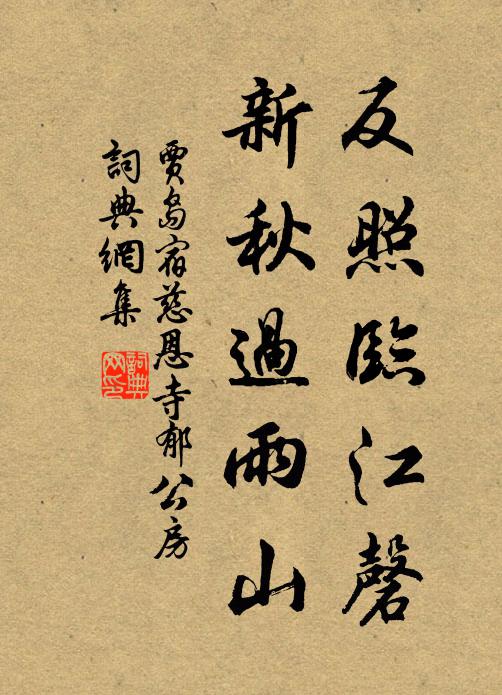 反照臨江磬
新秋過雨山
賈島宿慈恩寺郁公房
詞典網集
詞典网印